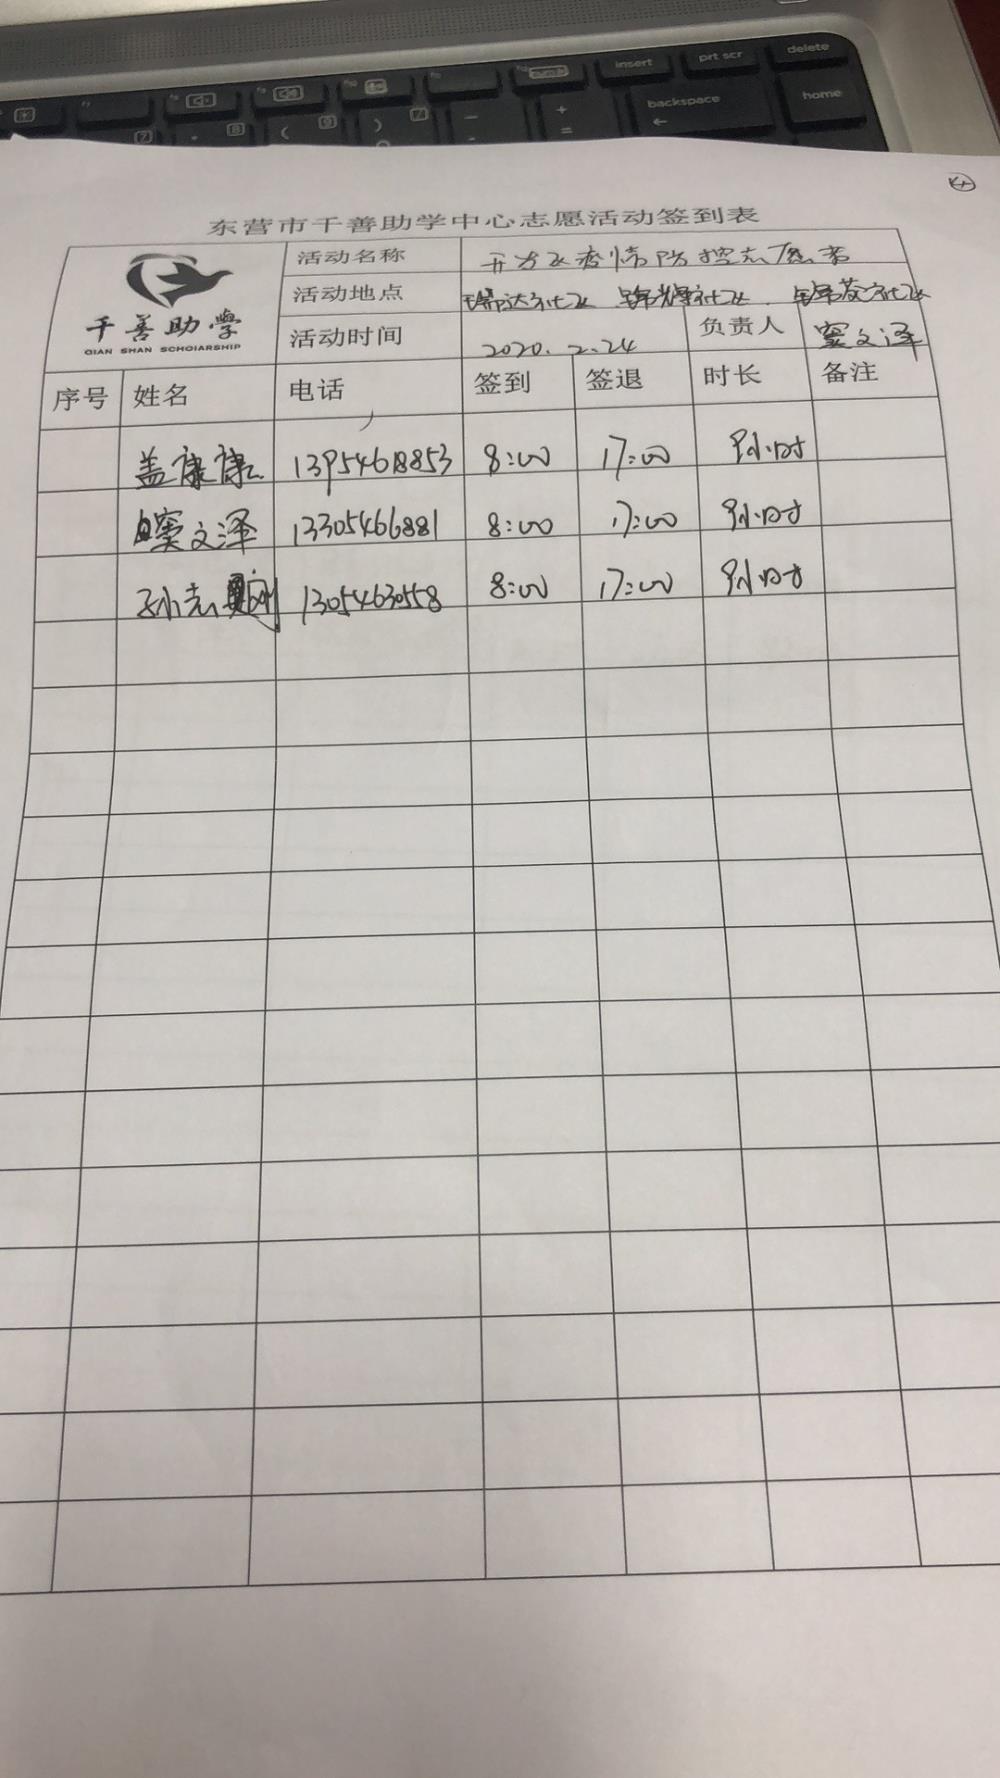 delete
prt scr
insert
home
backspace
东营市千善助学中心志愿活动签到表
千善助学
QIAN SHAN SCHOIARSHIP
活动名称 开方区疫情防控志愿者
活动地点 锦达社区 锦辉社区 锦苑社区
活动时间 2020.2.24 负责人 窦文泽
序号 姓名 电话 签到 签退 时长 备注
盖康康 13954618853 8:00 17:00 9小时
窦文泽 13305466881 8:00 17:00 9小时
孙志刚 13054630558 8:00 17:00 9小时